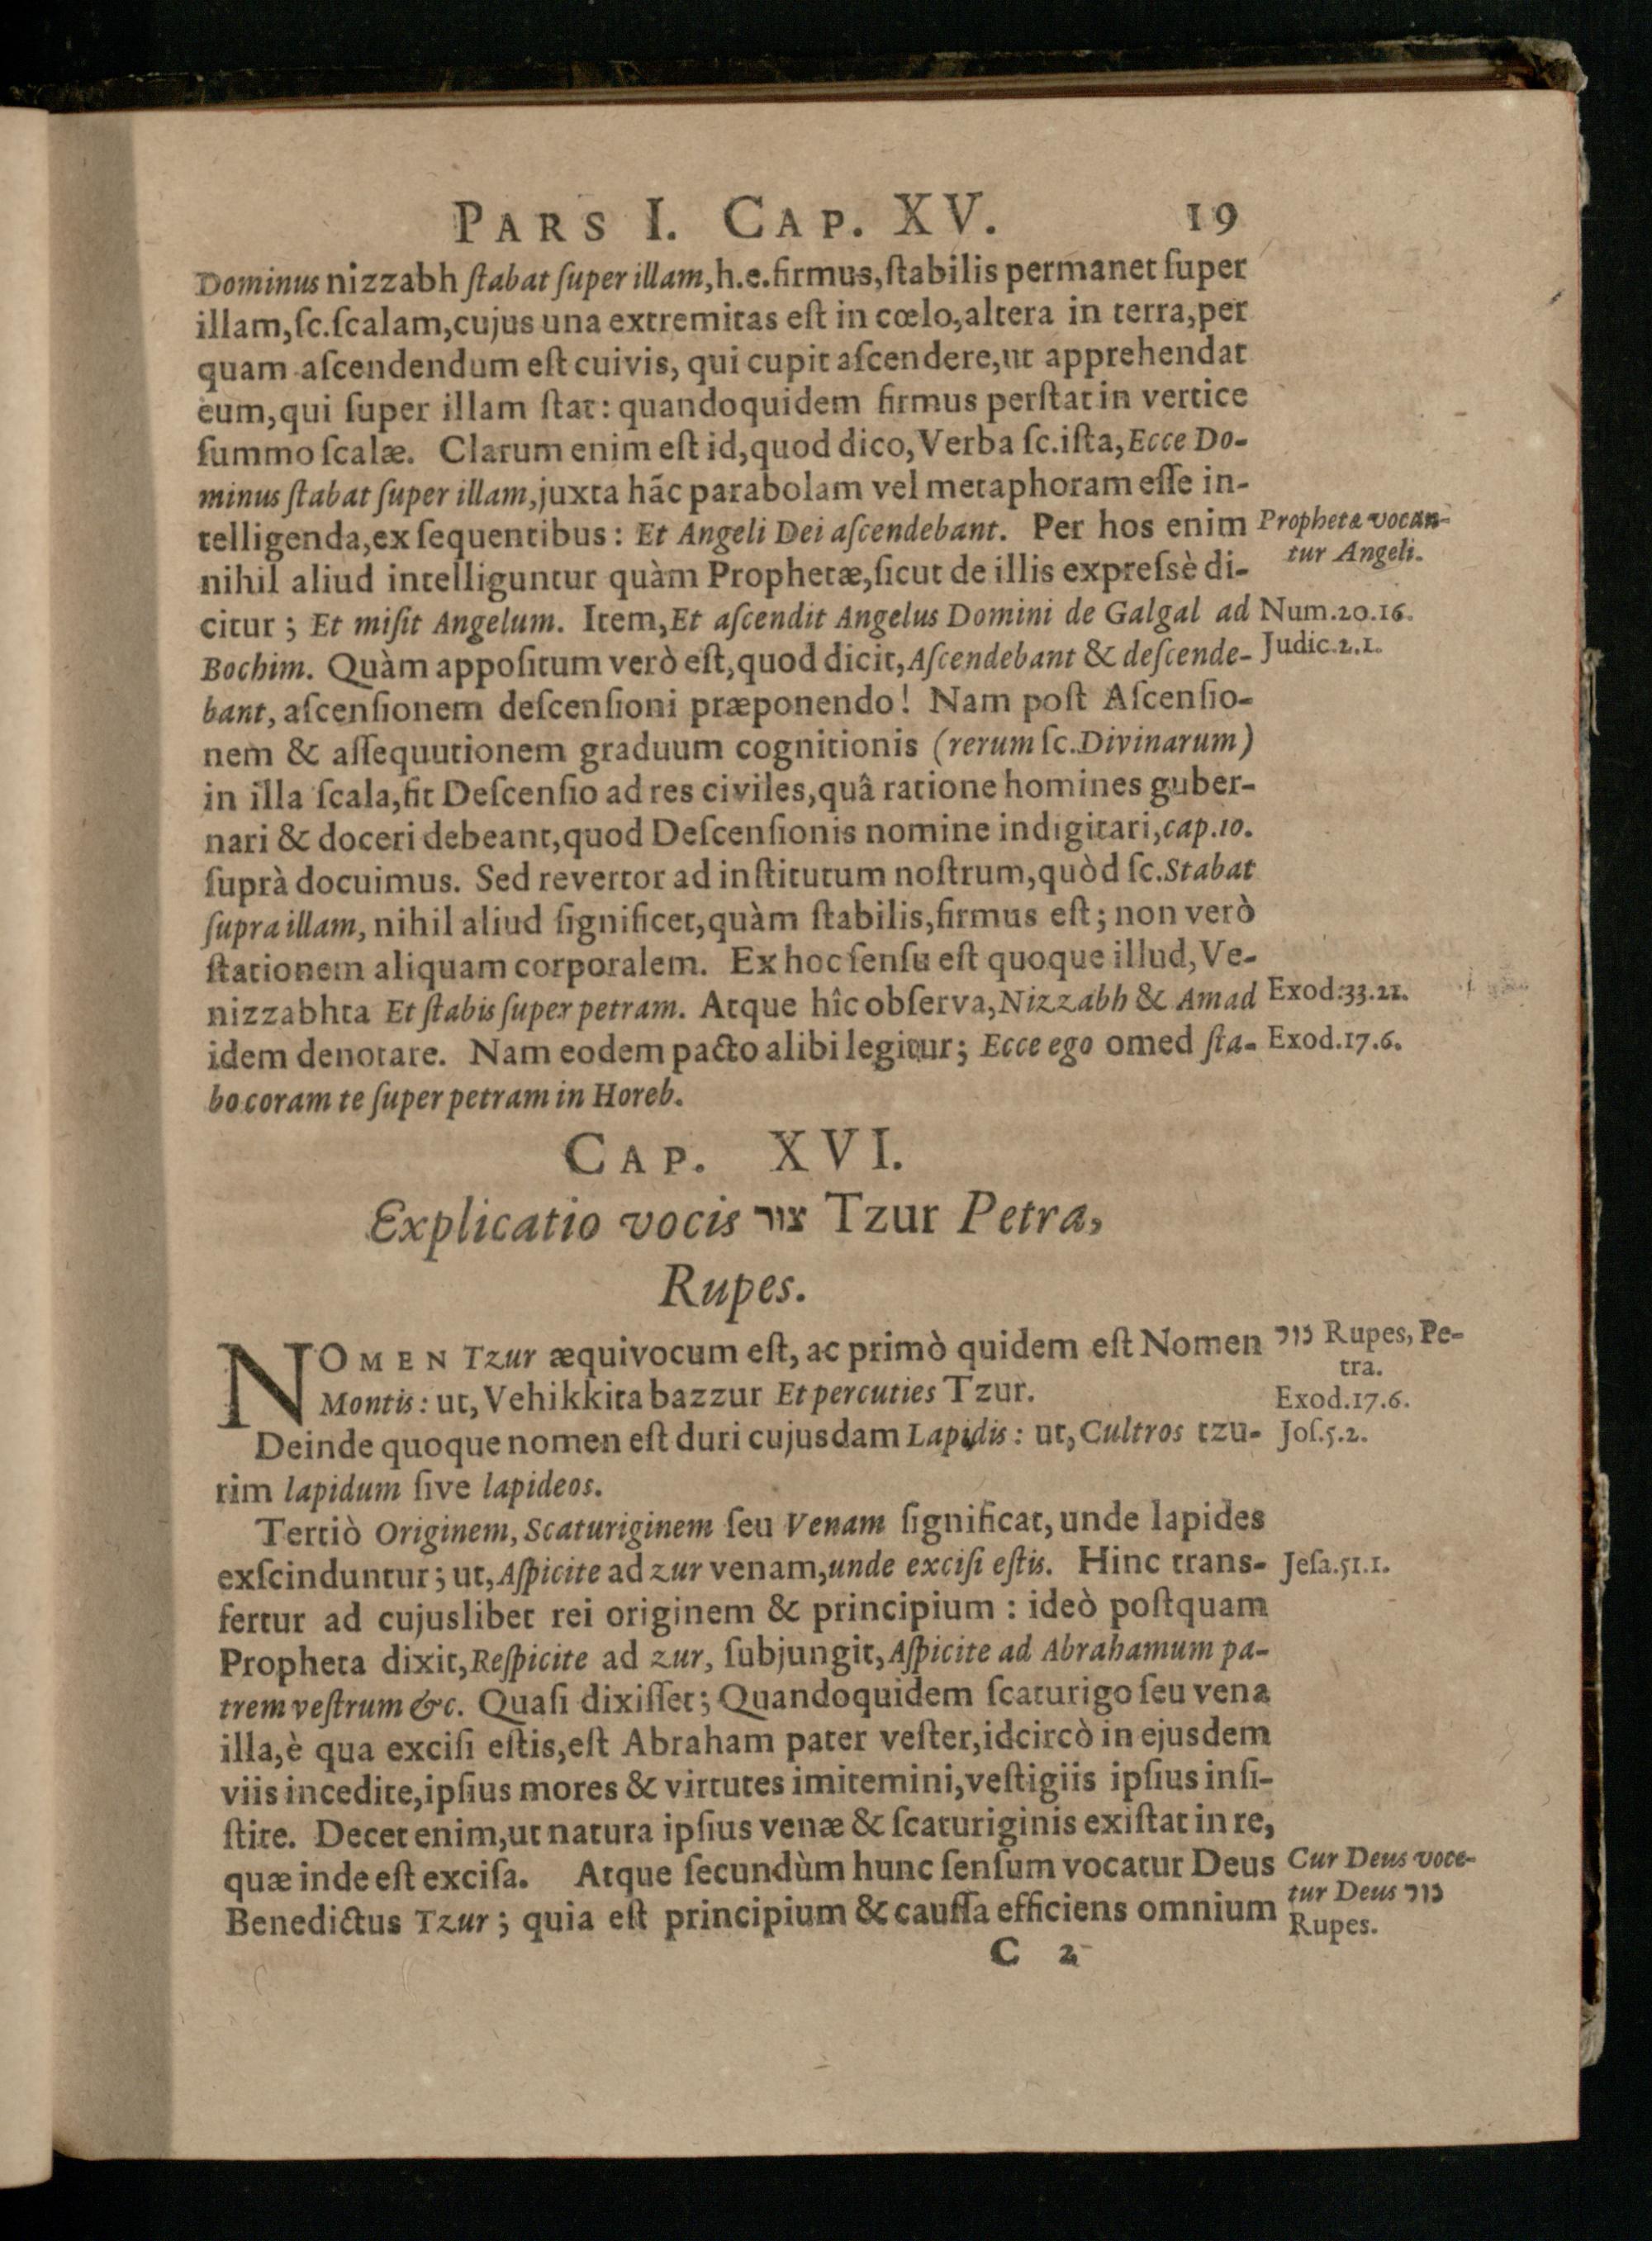 PARS I. CAP. XV. 19
Dominus nizzabh ſtabat ſuper illam, h.e. firmus, ſtabilis permanet ſuper
illam, ſc. ſcalam, cujus una extremitas eſt in cœlo, altera in terra, per
quam aſcendendum eſt cuivis, qui cupit aſcendere, ut apprehendat
eum, qui ſuper illam ſtat: quandoquidem firmus perſtat in vertice
ſummo ſcalæ. Clarum enim eſt id, quod dico, Verba ſc. iſta, Ecce Do-
minus ſtabat ſuper illam, juxta hãc parabolam vel metaphoram eſſe in-
telligenda, ex ſequentibus: Et Angeli Dei aſcendebant. Per hos enim
Prophetæ vocan-
tur Angeli.
nihil aliud intelliguntur quàm Prophetæ, ſicut de illis expreſsè di-
citur; Et miſit Angelum. Item, Et aſcendit Angelus Domini de Galgal ad
Num.20.16.
Bochim. Quàm appoſitum verò eſt, quod dicit, Aſcendebant & deſcende-
Judic.2.1.
bant, aſcenſionem deſcenſioni præponendo! Nam poſt Aſcenſio-
nem & aſſequutionem graduum cognitionis (rerum ſc. Divinarum)
in illa ſcala, fit Deſcenſio ad res civiles, quâ ratione homines guber-
nari & doceri debeant, quod Deſcenſionis nomine indigitari, cap.10.
ſuprà docuimus. Sed revertor ad inſtitutum noſtrum, quòd ſc. Stabat
ſupra illam, nihil aliud ſignificet, quàm ſtabilis, firmus eſt; non verò
ſtationem aliquam corporalem. Ex hoc ſenſu eſt quoque illud, Ve-
nizzabhta Et ſtabis ſuper petram. Atque hîc obſerva, Nizzabh & Amad
Exod.33.21.
idem denotare. Nam eodem pacto alibi legitur; Ecce ego omed ſta-
Exod.17.6.
bo coram te ſuper petram in Horeb.
CAP. XVI.
Explicatio vocis צור Tzur Petra,
Rupes.
NOMEN Tzur æquivocum eſt, ac primò quidem eſt Nomen
צור Rupes, Pe-
tra.
Montis: ut, Vehikkita bazzur Et percuties Tzur.
Exod.17.6.
Deinde quoque nomen eſt duri cujusdam Lapidis: ut, Cultros tzu-
Joſ.5.2.
rim lapidum ſive lapideos.
Tertiò Originem, Scaturiginem ſeu Venam ſignificat, unde lapides
exſcinduntur; ut, Aſpicite ad zur venam, unde exciſi eſtis. Hinc trans-
Jeſa.51.1.
fertur ad cujuslibet rei originem & principium: ideò poſtquam
Propheta dixit, Reſpicite ad zur, ſubjungit, Aſpicite ad Abrahamum pa-
trem veſtrum &c. Quaſi dixiſſet; Quandoquidem ſcaturigo ſeu vena
illa, è qua exciſi eſtis, eſt Abraham pater veſter, idcircò in ejusdem
viis incedite, ipſius mores & virtutes imitemini, veſtigiis ipſius inſi-
ſtite. Decet enim, ut natura ipſius venæ & ſcaturiginis exiſtat in re,
quæ inde eſt exciſa. Atque ſecundùm hunc ſenſum vocatur Deus
Cur Deus voce-
tur Deus צור
Rupes.
Benedictus Tzur; quia eſt principium & cauſſa efficiens omnium
C 2